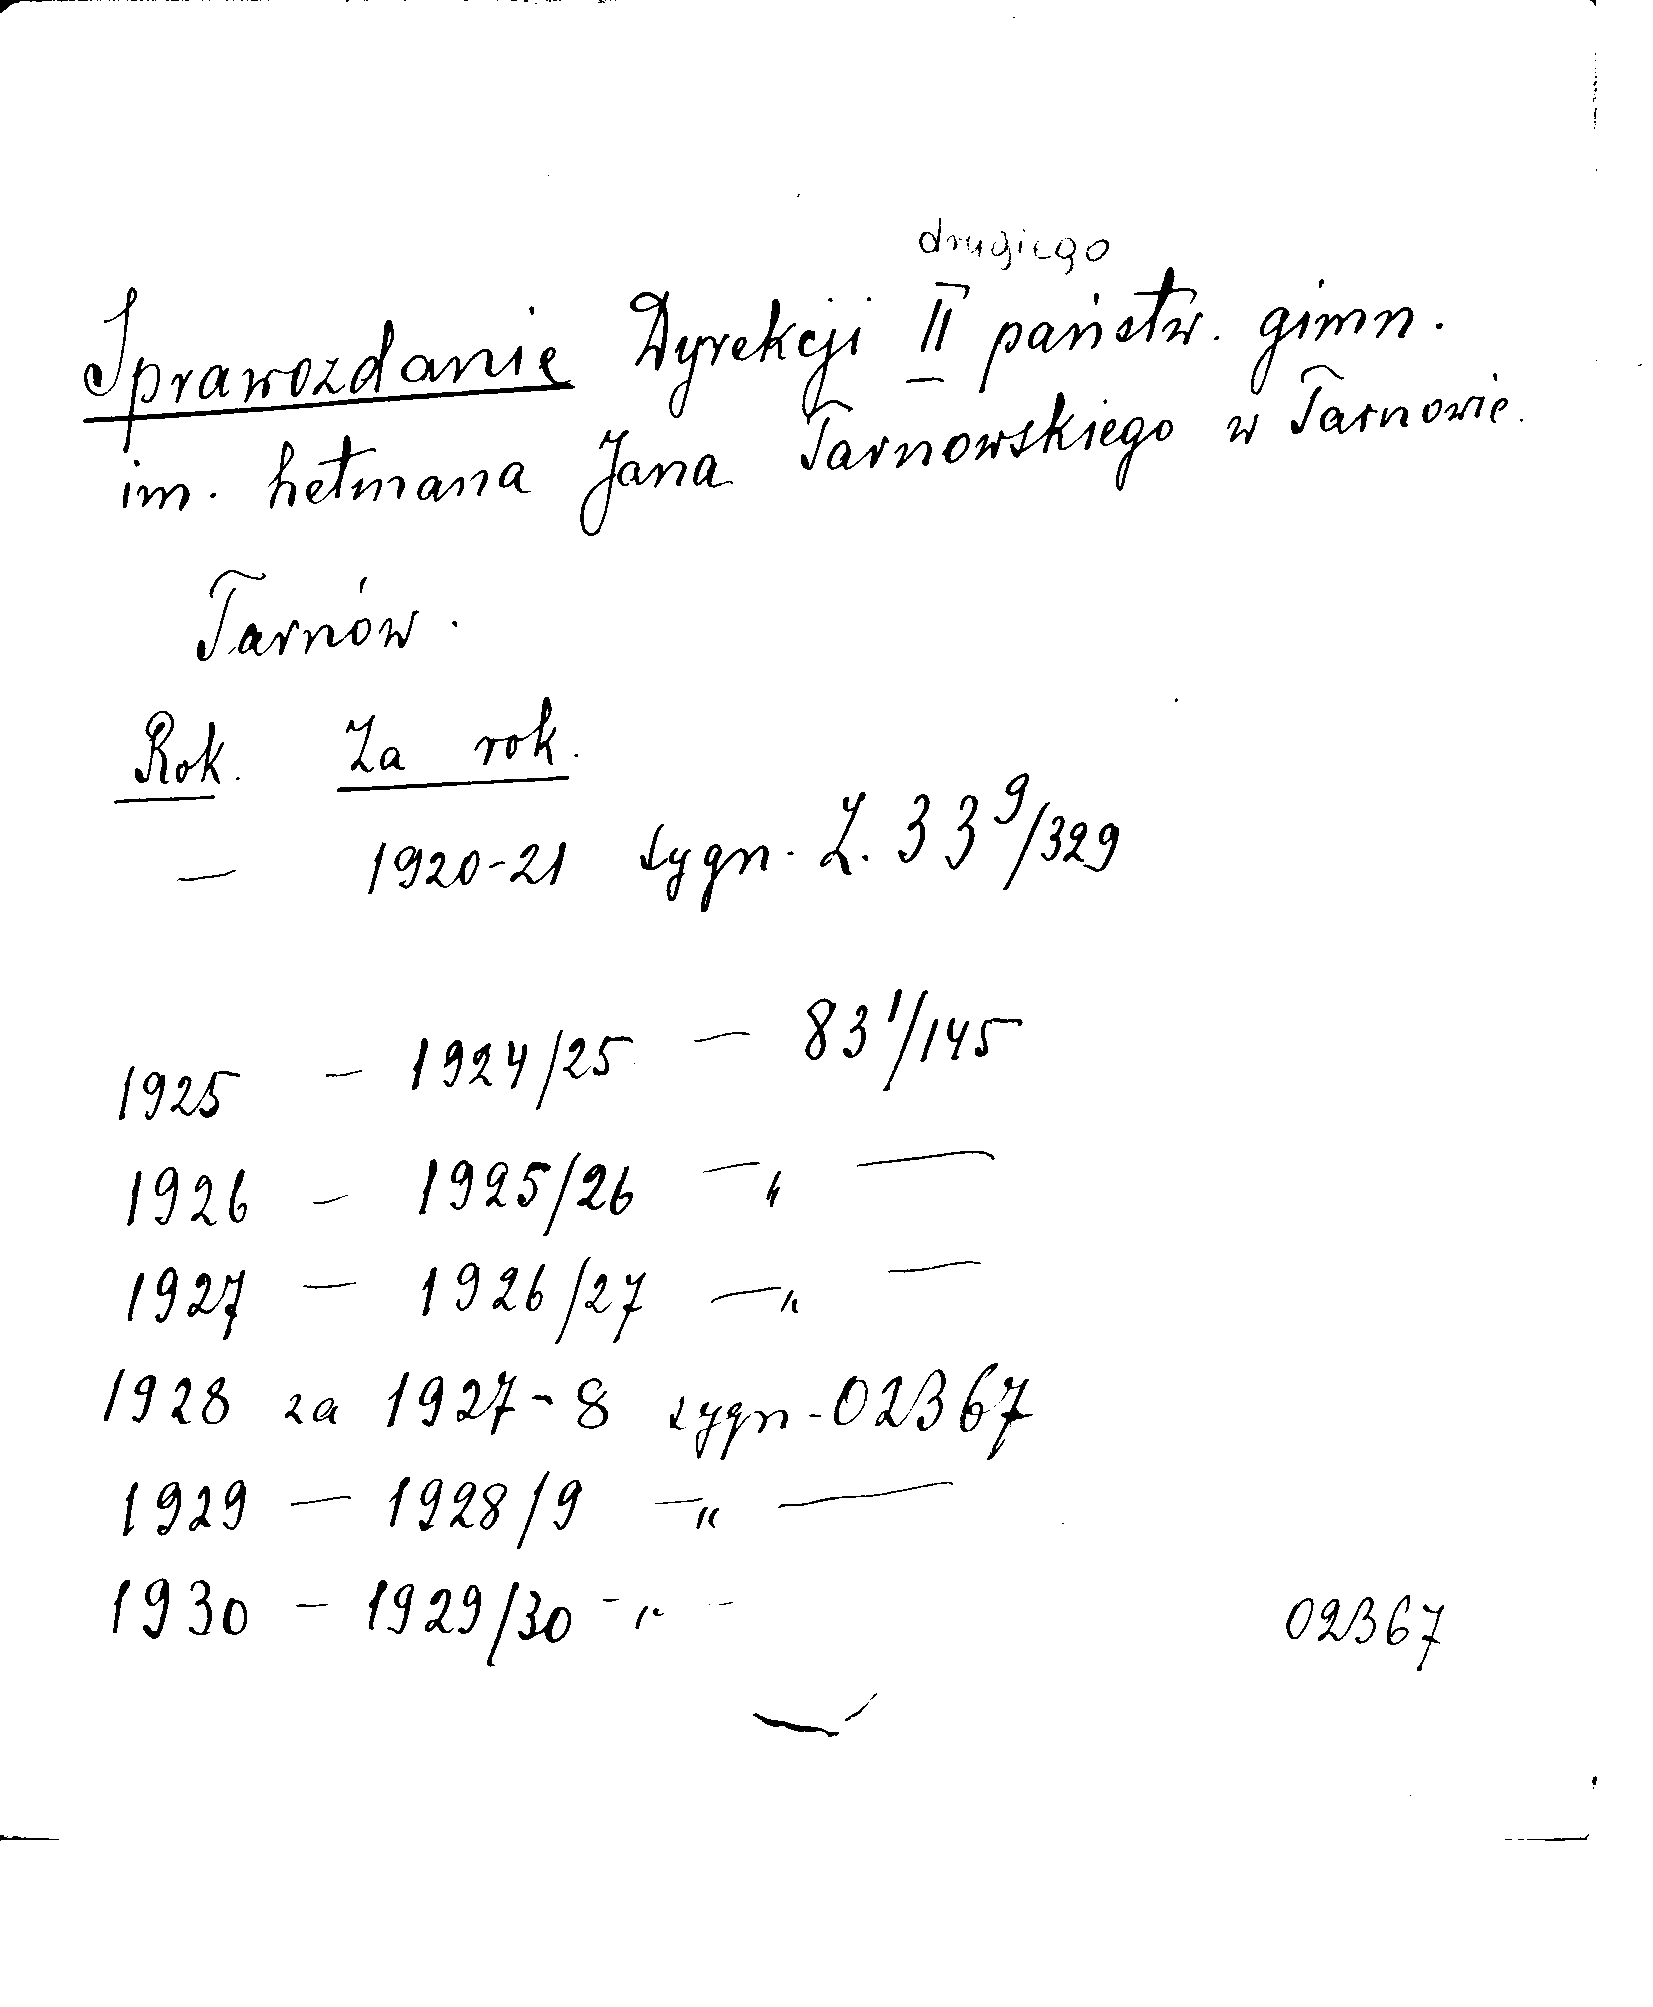 drugiego
Sprawozdanie Dyrekcji II państw. gimn.
im. hetmana Jana Tarnowskiego w Tarnowie.
Tarnów.
Rok. Za rok.
— 1920-21 sygn. Z. 33 9/329
1925 — 1924/25 — 83 1/145
1926 — 1925/26 — " —
1927 — 1926/27 — " —
1928 za 1927-8 sygn - 02367
1929 — 1928/9 — " —
1930 — 1929/30 - " -
02367